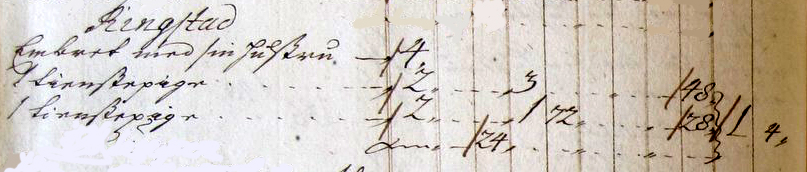 Ringstad
Embret med sin Hustru 4
1 tieneste pige 2 3 48
1 tieneste pige 2 1 72 28 1 4
24